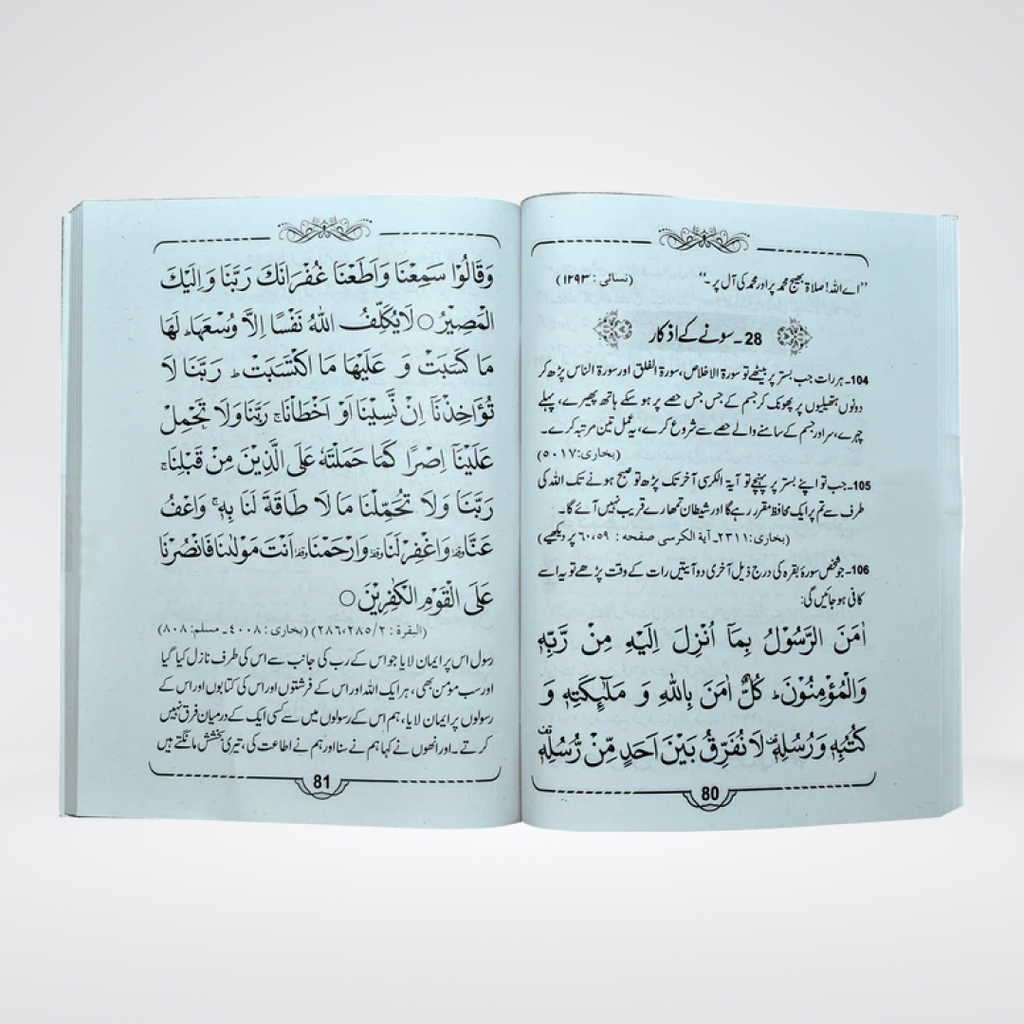 ”اے اللہ! صلاۃ بھیج محمد پر اور محمد کی آل پر۔“ (نسائی : ۱۲۹۳)
28۔ سونے کے اذکار
104۔ ہر رات جب بستر پر بیٹھے تو سورۃ الاخلاص، سورۃ الفلق اور سورۃ الناس پڑھ کر
دونوں ہتھیلیوں پر پھونک کر جسم کے جس جس حصے پر ہو سکے ہاتھ پھیرے، پہلے
چہرے، سر اور جسم کے سامنے والے حصے سے شروع کرے، یہ عمل تین مرتبہ کرے۔
(بخاری: ۵۰۱۷)
105۔ جب تو اپنے بستر پر پہنچے تو آیۃ الکرسی آخر تک پڑھ تو صبح ہونے تک اللہ کی
طرف سے تم پر ایک محافظ مقرر رہے گا اور شیطان تمھارے قریب نہیں آئے گا۔
(بخاری: ۲۳۱۱۔ آیۃ الکرسی صفحہ : ۶۰،۵۹ پر دیکھیے)
106۔ جو شخص سورۂ بقرہ کی درج ذیل آخری دو آیتیں رات کے وقت پڑھے تو یہ اسے
کافی ہو جائیں گی:
اٰمَنَ الرَّسُوْلُ بِمَآ اُنْزِلَ اِلَيْهِ مِنْ رَّبِّهٖ
وَالْمُؤْمِنُوْنَ ؕ كُلٌّ اٰمَنَ بِاللّٰهِ وَ مَلٰٓىِٕكَتِهٖ وَ
كُتُبِهٖ وَ رُسُلِهٖ ۫ لَا نُفَرِّقُ بَيْنَ اَحَدٍ مِّنْ رُّسُلِهٖ ۫
80
وَ قَالُوْا سَمِعْنَا وَ اَطَعْنَا غُفْرَانَكَ رَبَّنَا وَ اِلَيْكَ
الْمَصِيْرُ ○ لَا يُكَلِّفُ اللّٰهُ نَفْسًا اِلَّا وُسْعَهَا ؕ لَهَا
مَا كَسَبَتْ وَ عَلَيْهَا مَا اكْتَسَبَتْ ؕ رَبَّنَا لَا
تُؤَاخِذْنَآ اِنْ نَّسِيْنَآ اَوْ اَخْطَاْنَا ۚ رَبَّنَا وَ لَا تَحْمِلْ
عَلَيْنَآ اِصْرًا كَمَا حَمَلْتَهٗ عَلَى الَّذِيْنَ مِنْ قَبْلِنَا ۚ
رَبَّنَا وَ لَا تُحَمِّلْنَا مَا لَا طَاقَةَ لَنَا بِهٖ ۚ وَ اعْفُ
عَنَّا ٝ وَ اغْفِرْ لَنَا ٝ وَ ارْحَمْنَا ٝ اَنْتَ مَوْلٰىنَا فَانْصُرْنَا
عَلَى الْقَوْمِ الْكٰفِرِيْنَ ○
(البقرۃ : ۲/ ۲۸۵،۲۸۶) (بخاری: ۴۰۰۸۔ مسلم: ۸۰۸)
رسول اس پر ایمان لایا جو اس کے رب کی جانب سے اس کی طرف نازل کیا گیا
اور سب مومن بھی، ہر ایک اللہ اور اس کے فرشتوں اور اس کی کتابوں اور اس کے
رسولوں پر ایمان لایا، ہم اس کے رسولوں میں سے کسی ایک کے درمیان فرق نہیں
کرتے۔ اور انھوں نے کہا ہم نے سنا اور ہم نے اطاعت کی، تیری بخشش مانگتے ہیں
81